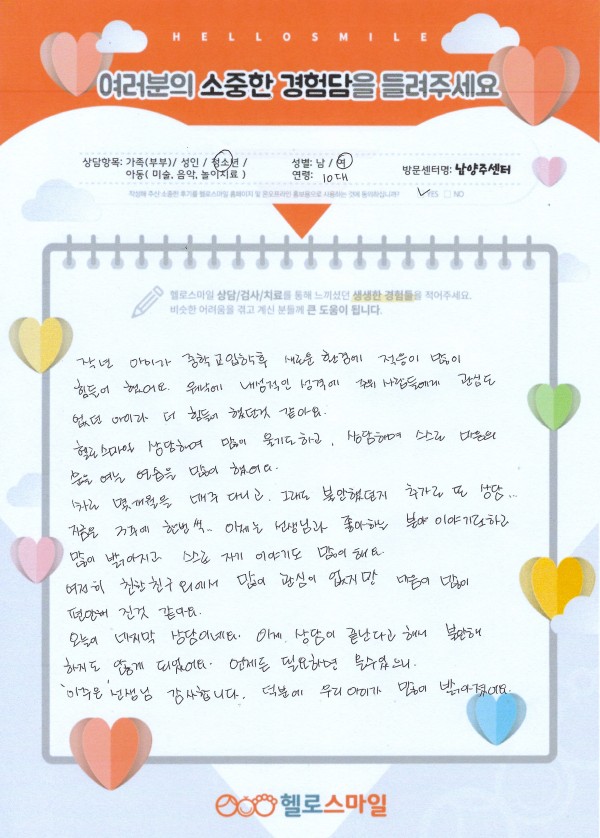 HELLOSMILE
여러분의 소중한 경험담을 들려주세요
상담항목: 가족(부부)/ 성인 / 청소년 /
아동( 미술, 음악, 놀이치료 )
성별: 남 / 여
연령: 10대
방문센터명: 남양주센터
작성해 주신 소중한 후기를 헬로스마일 홈페이지 및 온오프라인 홍보용으로 사용하는 것에 동의하십니까? ✓YES □ NO
헬로스마일 상담/검사/치료를 통해 느끼셨던 생생한 경험들을 적어주세요.
비슷한 어려움을 겪고 계신 분들께 큰 도움이 됩니다.
작년 아이가 중학교입학후 새로운 환경에 적응이 많이
힘들어 했어요. 워낙에 내성적인 성격에 주위 사람들에게 관심도
없던 아이라 더 힘들어 했던것 같아요.
헬로스마일 상담하며 많이 울기도하고, 상담하며 스스로 마음의
문을 여는 연습을 많이 했어요.
1차로 몇개월을 매주 다니고, 그래도 불안했던지 추가로 또 상담..
지금은 격주에 한번씩.. 이제는 선생님과 좋아하는 분야 이야기도하고
많이 밝아지고 스스로 자기 이야기도 많이해요.
여전히 친한친구 외에서 많이 관심이 없지만 마음이 많이
편안해 진것 같아요.
오늘이 마지막 상담이네요. 이제 상담이 끝난다고 해도 불안해
하지도 않게 되었어요. 언제든 필요하면 올수있으니.
'이주은' 선생님 감사합니다. 덕분에 우리아이가 많이 밝아졌어요.
헬로스마일